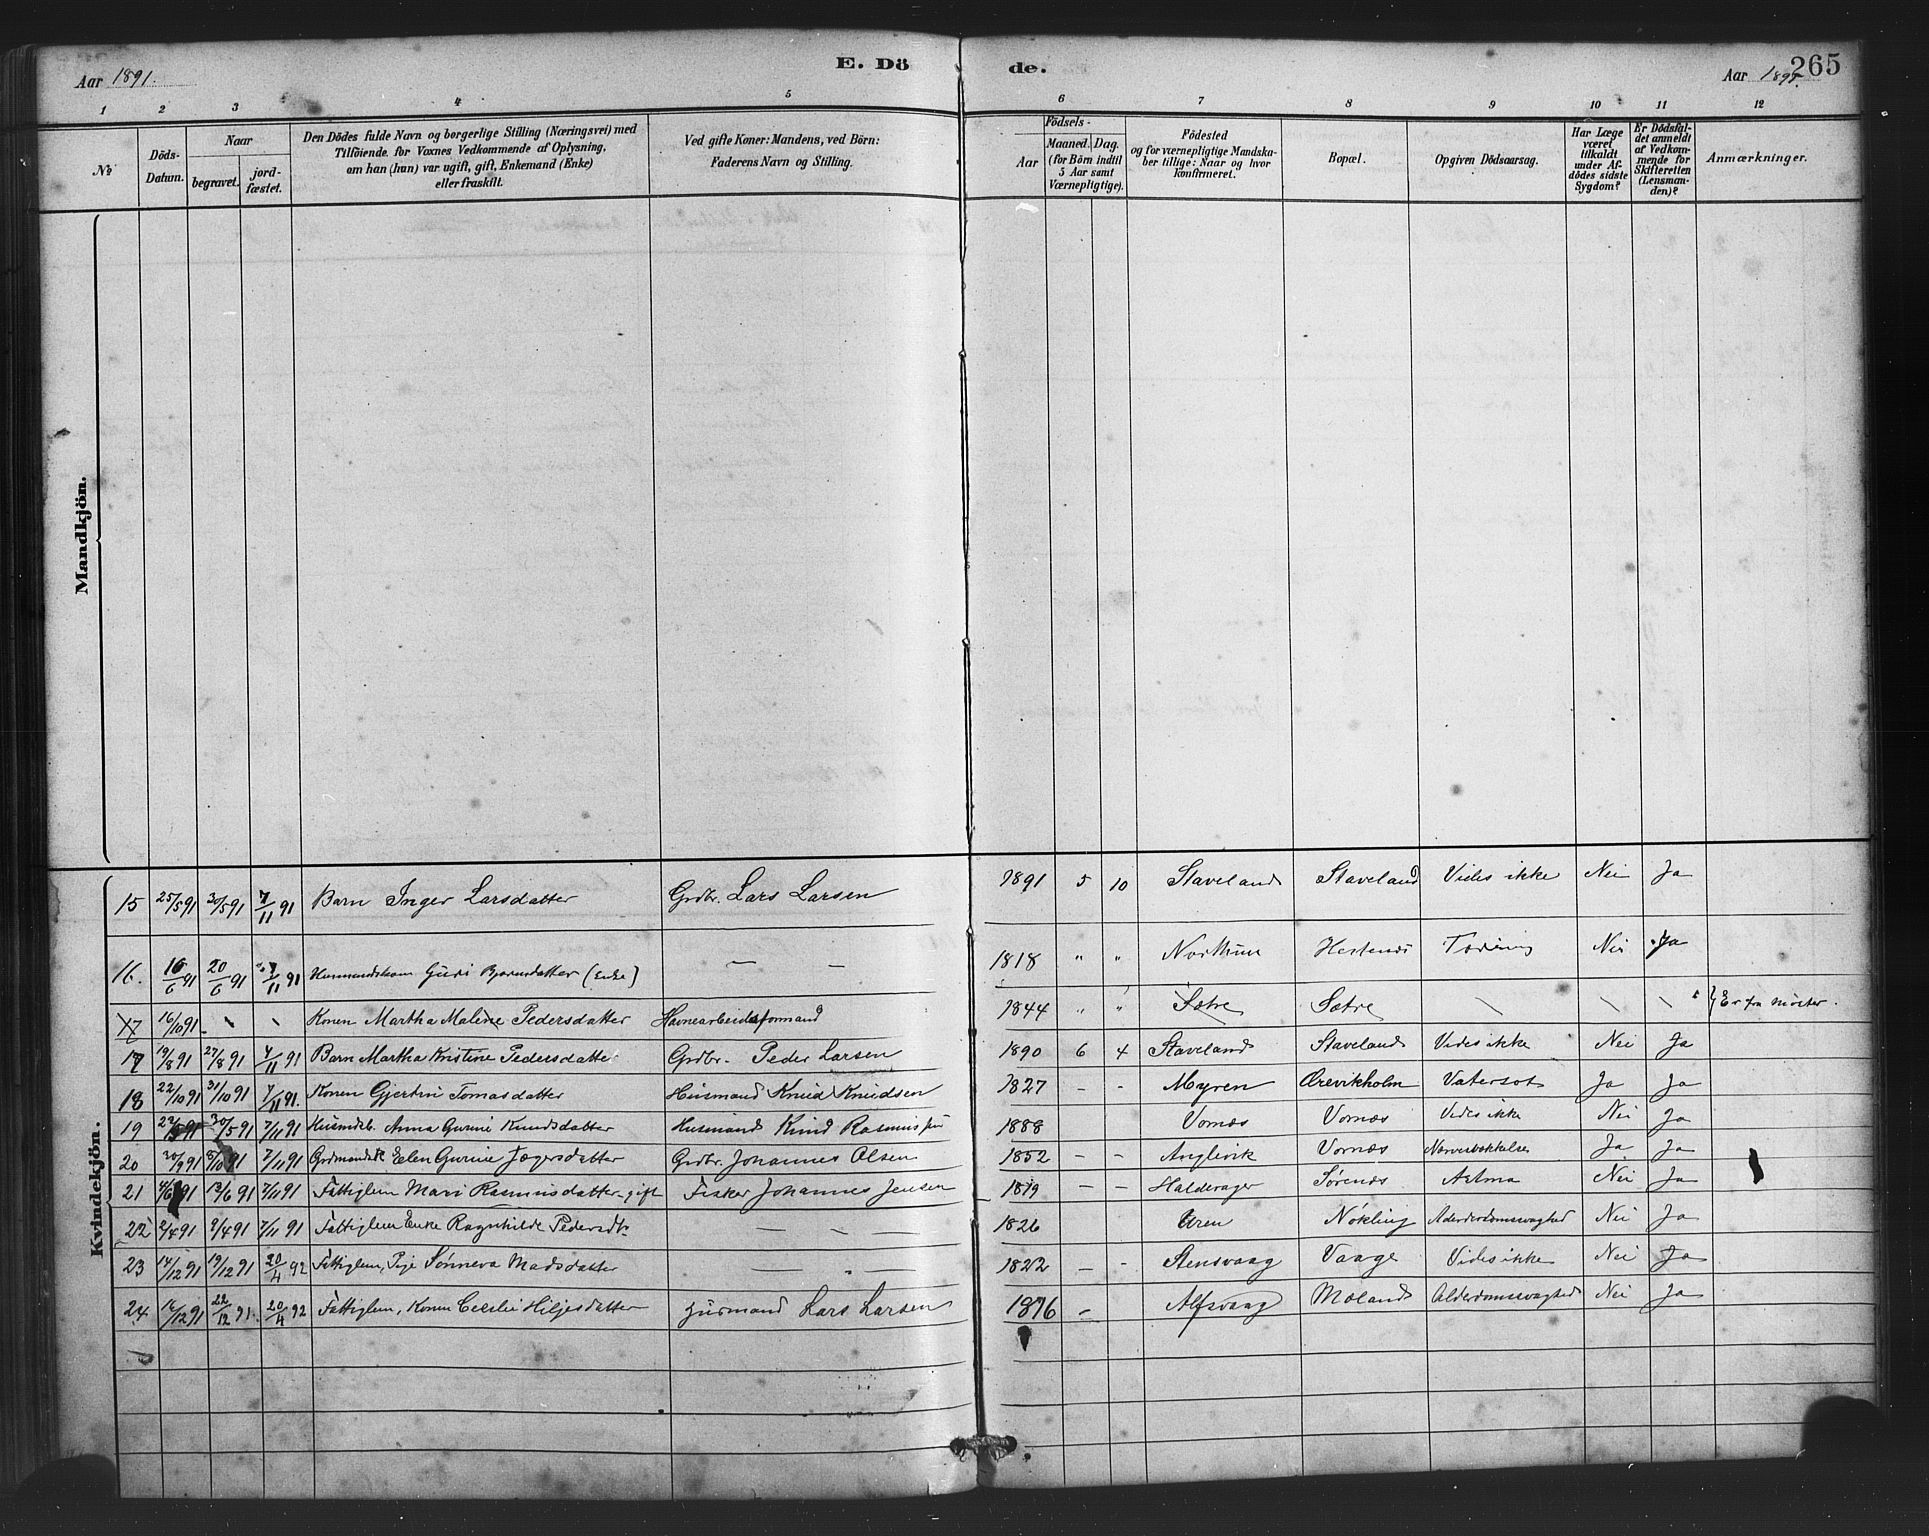 Aar 1891. E. Dö de. Aar 1891. 265
1 2 3 4 5 6 7 8 9 10 11 12
№
Döds-Datum.
Naar
begravet.
jord-fæstet.
Den Dödes fulde Navn og borgerlige Stilling (Næringsvei) med
Tilföiende for Voxnes Vedkommende af Oplysning,
om han (hun) var ugift, gift, Enkemand (Enke)
eller fraskilt.
Ved gifte Koner: Mandens, ved Börn:
Faderens Navn og Stilling.
Födsels-
Aar
Maaned. Dag.
(for Börn indtil
5 Aar samt
Værnepligtige).
Födested
og for værnepligtige Mandska-
ber tillige: Naar og hvor
konfirmeret.
Bopæl.
Opgiven Dödsaarsag.
Har Læge
været
tilkaldt
under Af-
dödes sidste
Sygdom?
Er Dödsfal-
det anmeldt
af Vedkom-
mende for
Skifteretten
(Lensman-
den)?
Anmærkninger.
Mandkjön.
Kvindekjön.
15 25/5 91 30/5 91 7/11 91 Barn Inger Larsdatter Grdbr. Lars Larsen 1891 5 10 Staveland Staveland Vides ikke Nei Ja
16. 16/6 91 20/6 91 7/11 91 Husmandskone Guri Bjørnsdatter (Enke) — — 1818 " " Hestenes Tæring Nei Ja
17 16/10 91 Konen Martha Malene Pedersdatter Havnearbeidsformand 1844 " " Sætre Sætre Er fra Moster.
17 19/8 91 27/8 91 7/11 91 Barn Martha Kristine Pedersdatter Grdbr. Peder Larsen 1890 6 4 Staveland Staveland Vides ikke Nei Ja
18 22/10 91 31/10 91 7/11 91. Konen Gjertru Tomasdatter Husmand Knud Knudsen 1827 - - Myren Ørevikholm Vatersot Ja Ja
19 22/5 91 30/5 91 7/11 91 Husmdsb. Anna Gurine Knudsdatter Husmand Knud Rasmussen 1888 Vornæs Vornæs Vides ikke Nei Ja
20 30/9 91 5/10 91 7/11 91 Elen Gurine Jægersdatter Grdbr. Johannes Olsen 1852 - - Anglevik Vornæs Ja Ja
21 4/6 91 13/6 91 7/11 91 Fattiglem Mari Rasmusdatter gift Fisker Johannes Jensen 1819 - - Halderager Sørenæs Astma Nei Ja
22 2/4 91 9/4 91 7/11 91 Fattiglem Enke Ragnhilde Pedersdtr — — 1826 Uren Nøkling Alderdomssvaghed Nei Ja
23 14/12 91 19/12 91 20/4 92 Fattiglem, Pige Sønneva Madsdatter 1822 - - Stensvaag Vaage Vides ikke Nei Ja
24 16/12 91 22/12 91. 20/4 92 Fattiglem, Konen Cecilie Hiljesdatter Husmand Lars Larsen 1816 - Alfsvaag Mæland Alderdomssvaghed Nei Ja